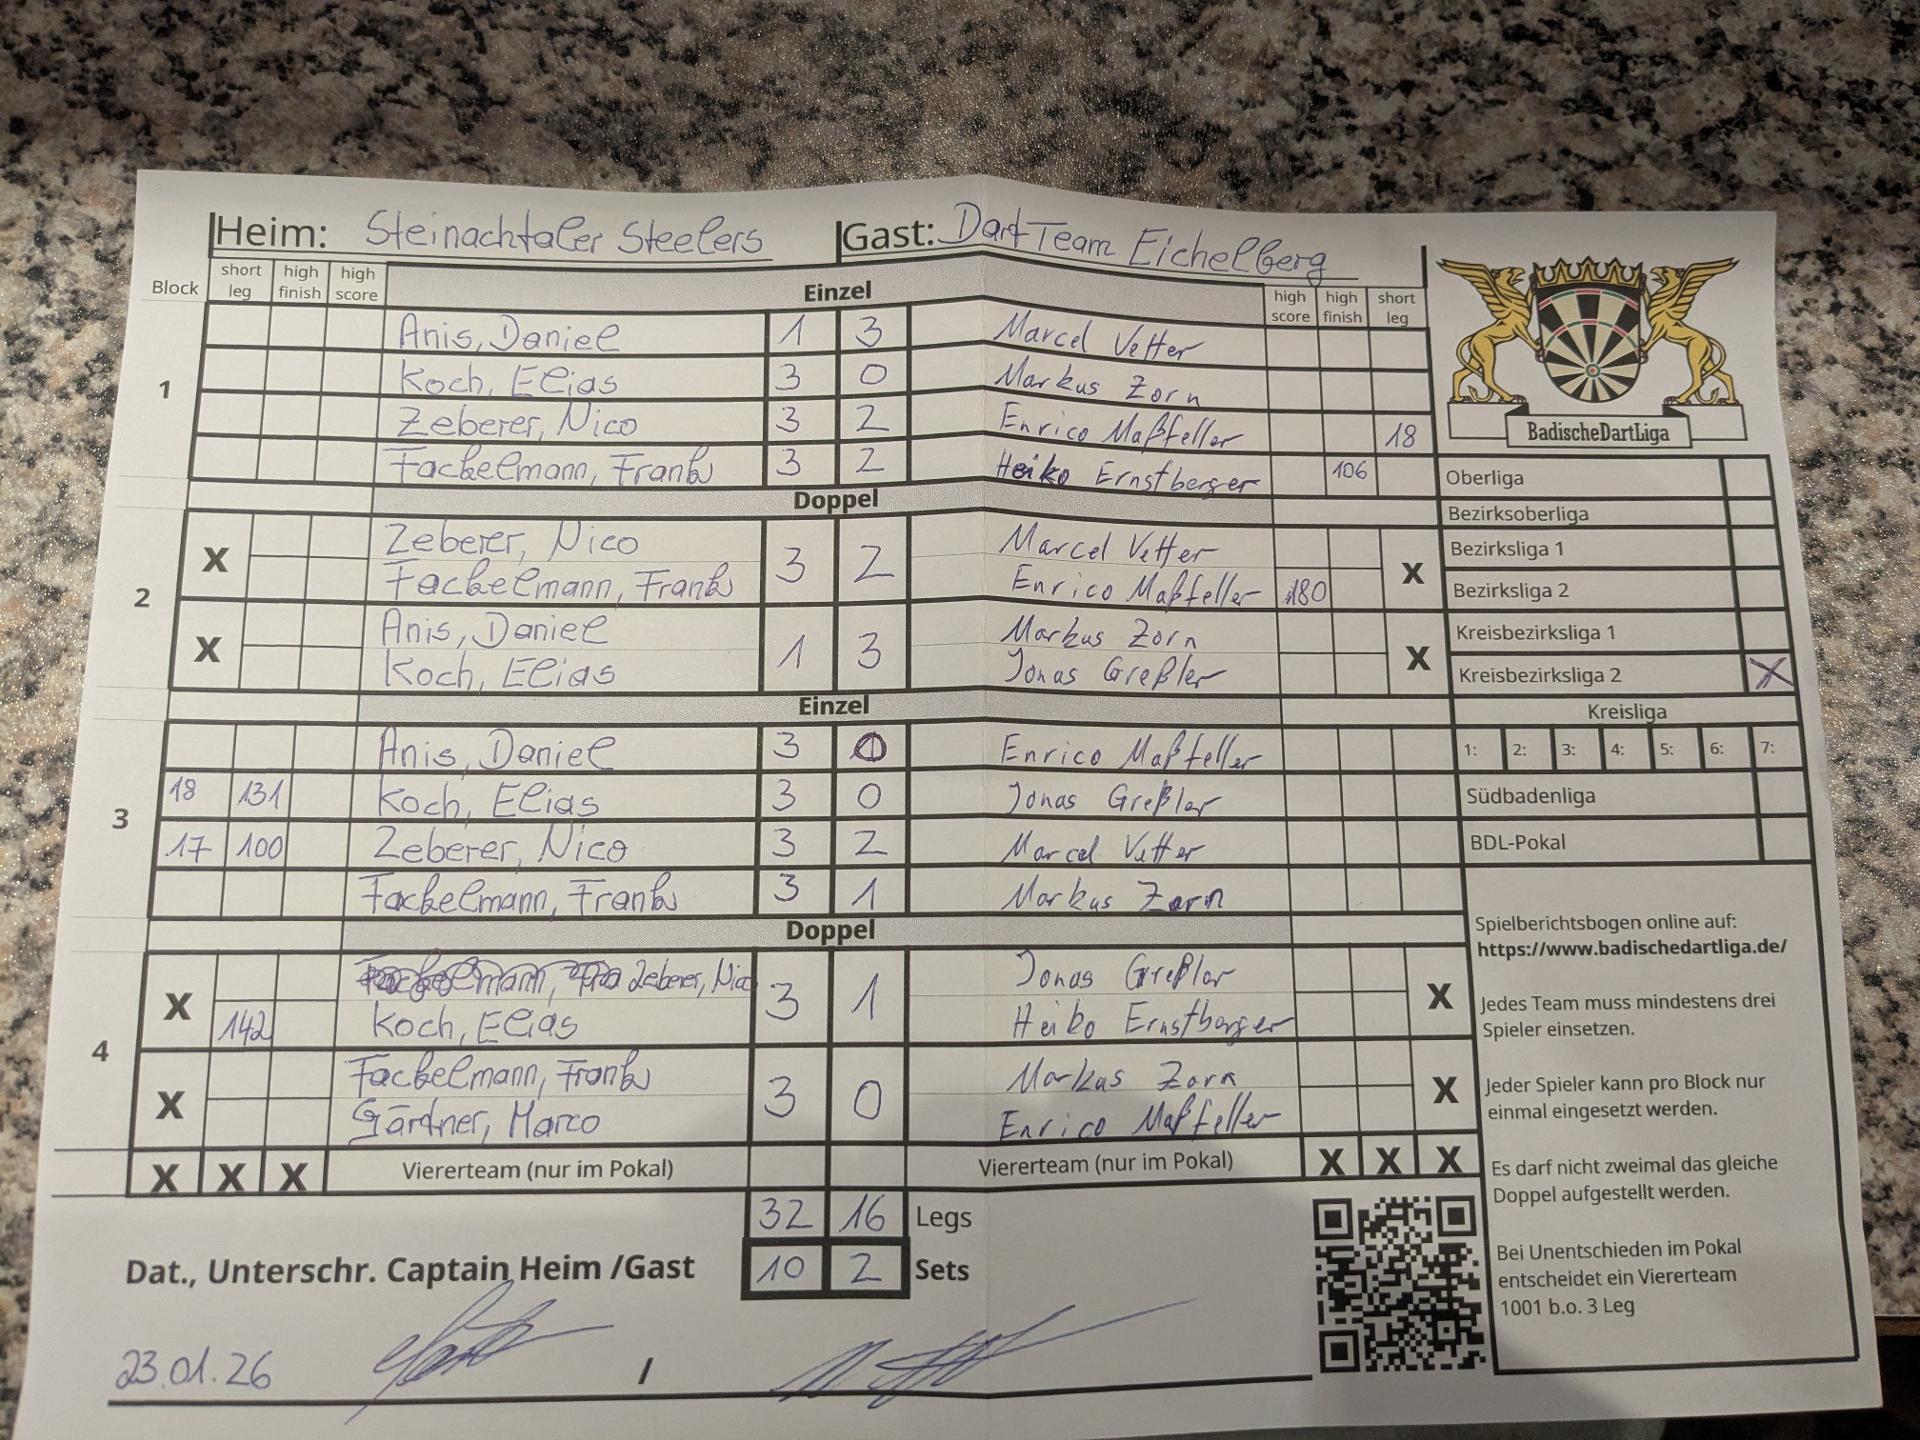 Heim: Steinachtaler Steelers Gast: Dart Team Eichelberg
Block short leg high finish high score Einzel high score high finish short leg
1
Anis, Daniel 1 3 Marcel Vetter
Koch, Elias 3 0 Markus Zorn
Zeberer, Nico 3 2 Enrico Maßfeller 18
Fackelmann, Frank 3 2 Heiko Ernstberger 106
Doppel
2
X Zeberer, Nico 3 2 Marcel Vetter X
Fackelmann, Frank Enrico Maßfeller 180
X Anis, Daniel 1 3 Markus Zorn X
Koch, Elias Jonas Greßler
Einzel
3
Anis, Daniel 3 0 Enrico Maßfeller
18 131 Koch, Elias 3 0 Jonas Greßler
17 100 Zeberer, Nico 3 2 Marcel Vetter
Fackelmann, Frank 3 1 Markus Zorn
Doppel
4
X Zeberer, Nico 3 1 Jonas Greßler X
142 Koch, Elias Heiko Ernstberger
X Fackelmann, Frank 3 0 Markus Zorn X
Gärtner, Marco Enrico Maßfeller
X X X Viererteam (nur im Pokal) Viererteam (nur im Pokal) X X X
32 16 Legs
10 2 Sets
Dat., Unterschr. Captain Heim /Gast
23.01.26 /
BadischeDartLiga
Oberliga
Bezirksoberliga
Bezirksliga 1
Bezirksliga 2
Kreisbezirksliga 1
Kreisbezirksliga 2 X
Kreisliga
1: 2: 3: 4: 5: 6: 7:
Südbadenliga
BDL-Pokal
Spielberichtsbogen online auf:
https://www.badischedartliga.de/
Jedes Team muss mindestens drei
Spieler einsetzen.
Jeder Spieler kann pro Block nur
einmal eingesetzt werden.
Es darf nicht zweimal das gleiche
Doppel aufgestellt werden.
Bei Unentschieden im Pokal
entscheidet ein Viererteam
1001 b.o. 3 Leg